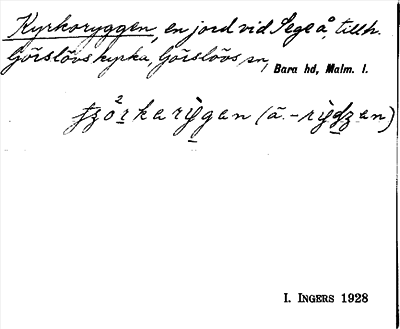 Kyrkoryggen, en jord vid Sege å, tillh.
Görslövs kyrka, Görslövs sn, Bara hd, Malm. l.
tʒö²rkarỳgan (ä. -rỳdʒan)
I. INGERS 1928